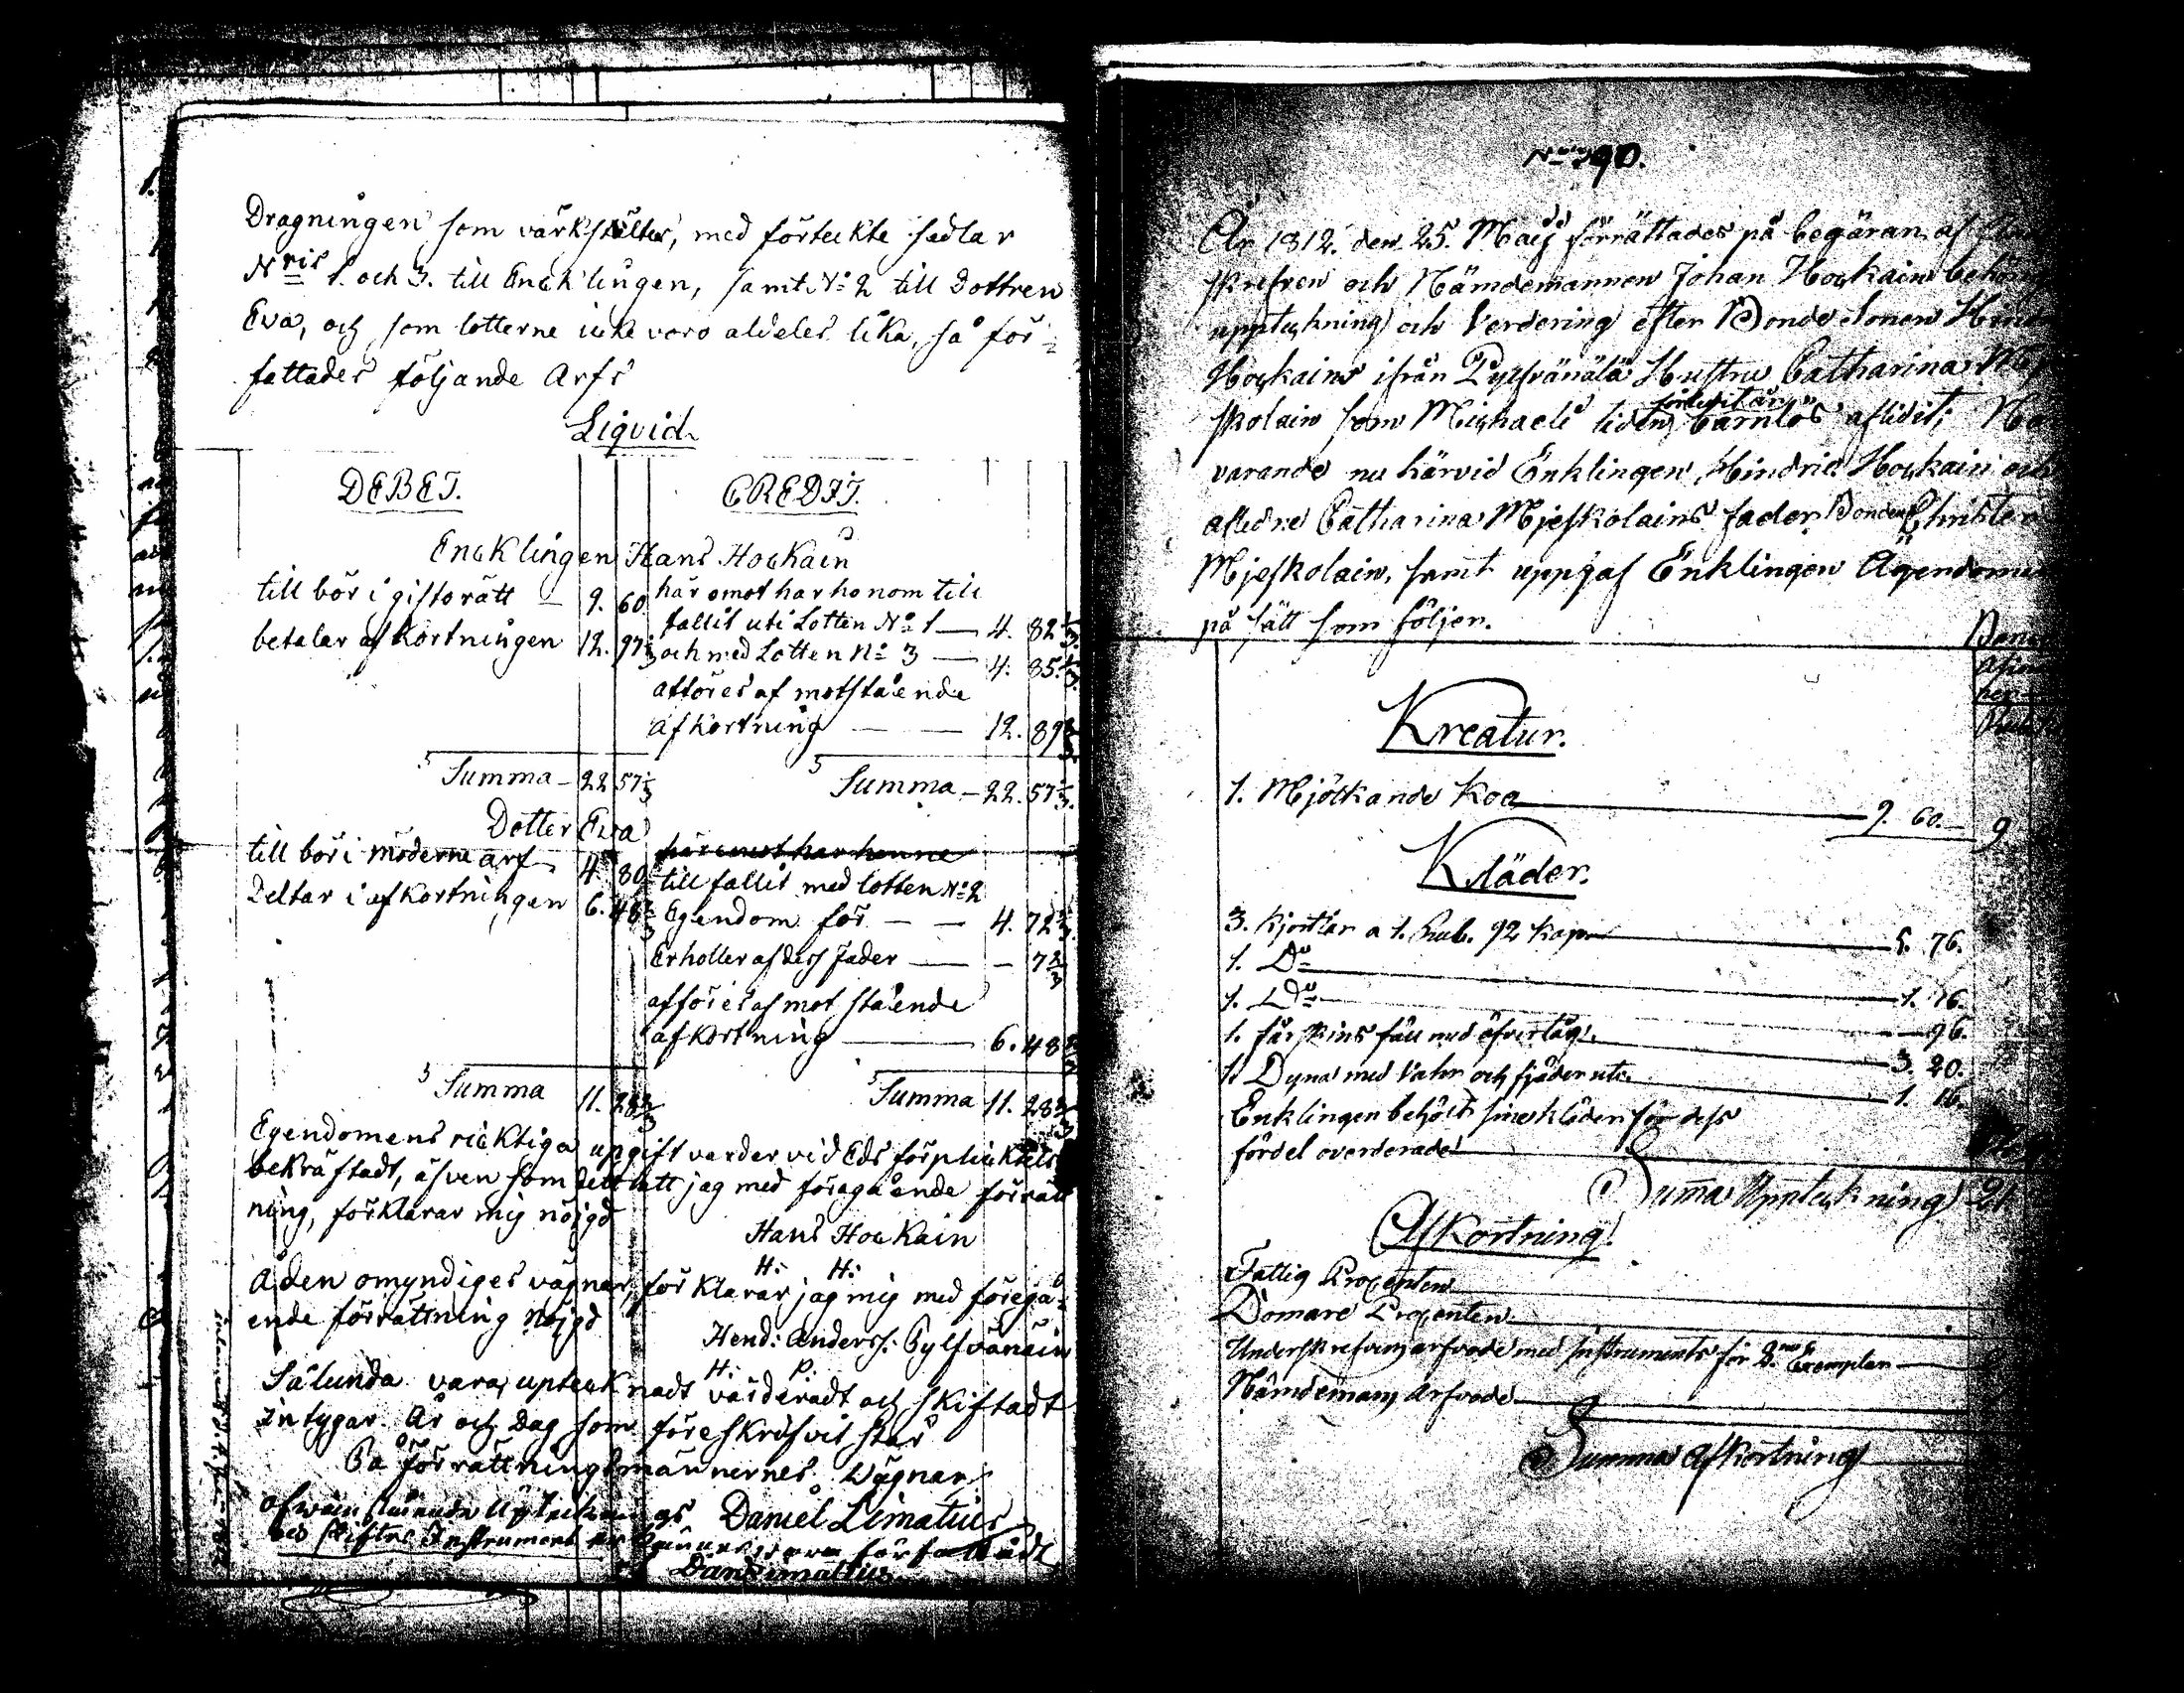 Dragningen som värkstältes, med förtekte sedlar
N<u>ris</u> 1. och 3. till Encklingen, samt N: 2 till Dottren
Eva, och som lotterne icke voro aldeles lika, så för-
fattades följande Arfs
Liqvid.
DEBET. CREDIT.
Encklingen Hans Hockain
till bör i giftorätt — 9. 60
betalar afkortningen 12. 97 1/3
Summa — 22 57 1/3
här emot har honom till
fallit uti Lotten No 1 — 4. 82 1/3.
och med Lotten No 3 — 4. 85 1/3.
afföres af motstående
afkortning — 12. 89 2/3
Summa — 22. 57 1/3.
Dotter Eva
till bör i möderne arf 4. 80
Deltar i afkortningen 6. 48 2/3
Summa 11. 28 2/3
här emot har henne
till fallit med lotten No 2
Egendom för — 4. 72 1/3.
Erholler af dess Fader — 7 2/3
afföres af mot stående
afkortning — 6. 48 2/3
Summa 11. 28 2/3
Egendomens ricktiga upgift varder vid Eds förplicktelse
bekräftadt, äfven som dett att jag med föregående förrätt
ning, förklarar mig nöjgd
Hans Hockain
H: H:
Å den omyndiges vägnar, för klarar jag mig med föregå-
ende förrättning nöjgd
Hend: Anderss: Pylfvänäin
H: P:
Sålunda vara, upteck nadt värderadt och skiftadt
Intygar. År och Dag som föreskrifvit står
På förrättningsmännernes Vägnar
Daniel Limatius
Instrument
Dan Limatius
No 290.
År 1812. den 25. Maij förrättades på begäran af
skrefven och Nämdemannen Johan Hockain behörig
uppteckning och Verdering efter Bonde Sonen
Hockains ifrån Pylfvänälä Hustru Catharina
skolain som Michaeli tiden barnlös aflidit;
varande nu härvid Enklingen, Hindric Hockain och
afledne Catharina Mjeskolains fader Bonden Christer
Mjeskolain, samt uppgaf Enklingen Ägendomen
på sätt som följer.
Kreatur.
1. Mjölkande Koa — 9. 60. — 9
Kläder.
3. Kjortlar a 1. Rub. 92 kop — 5. 76.
1. D<u>o</u> — 1. 76.
1. D<u>o</u> — 96.
1. fårskins fäll med öfverlag. — 3. 20.
1. Dyna med Vahr och fjäder uti — 1. 16.
Enklingen behölt sine kläder för dess
fördel overderade
Summa Uppteckning 21
Afkortning.
Fattig Procenten
Domare Procenten
Underskrefvens arfvode med Instruments för 2. Exemplar
Nämdemans Arfvode
Summa Afkortning